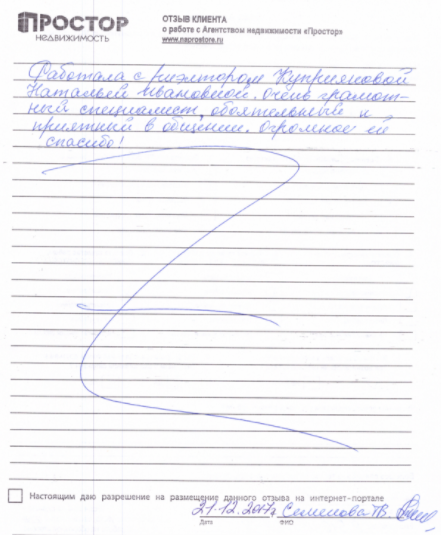 ПРОСТОР
НЕДВИЖИМОСТЬ
ОТЗЫВ КЛИЕНТА
о работе с Агентством недвижимости «Простор»
www.naprostore.ru
Работала с риэлтором Куприяновой
Натальей Ивановной. Очень грамот-
ный специалист, обоятельный и
приятный в общении. Огромное ей
спасибо!
Настоящим даю разрешение на размещение данного отзыва на интернет-портале
21.12.2017г. Семенова Т.В.
Дата ФИО